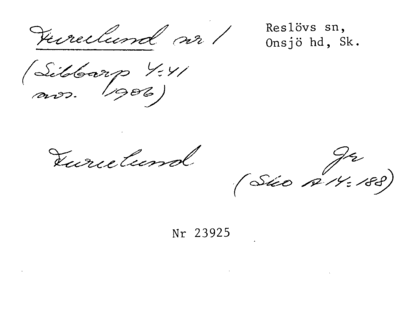 Furulund nr 1
Reslövs sn,
Onsjö hd, Sk.
(Sibbarp 4:41
nov. 1906)
Furulund
Jr
(Sko A 14:188)
Nr 23925